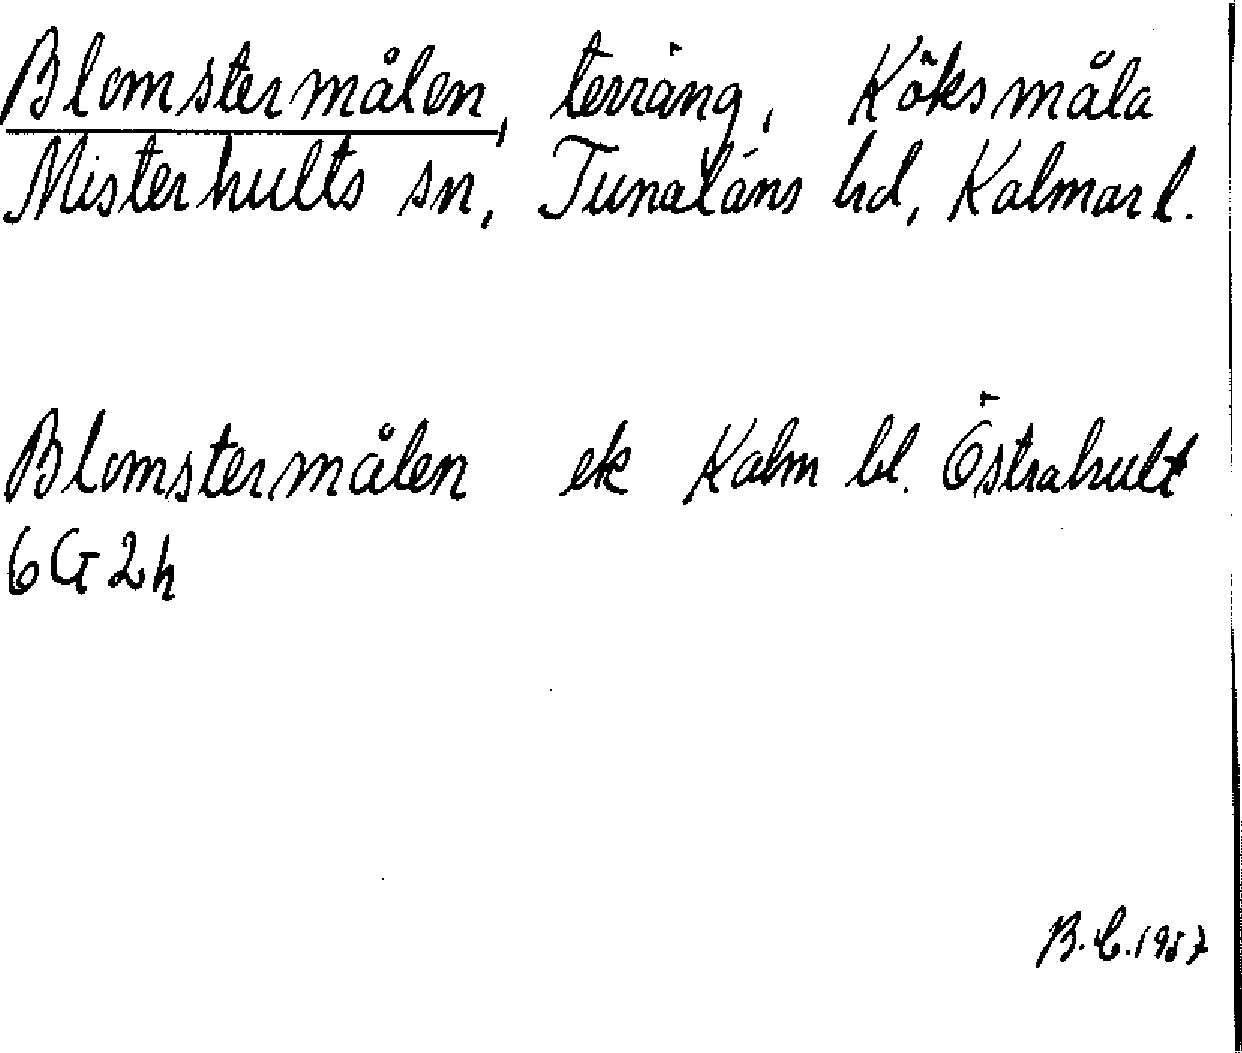 Blomstermålen, terräng, Köksmåla
Misterhults sn, Tunaläns hd, Kalmar l.
Blomstermålen ek Kalm bl. Östrahult
6G2h
B.C.1957